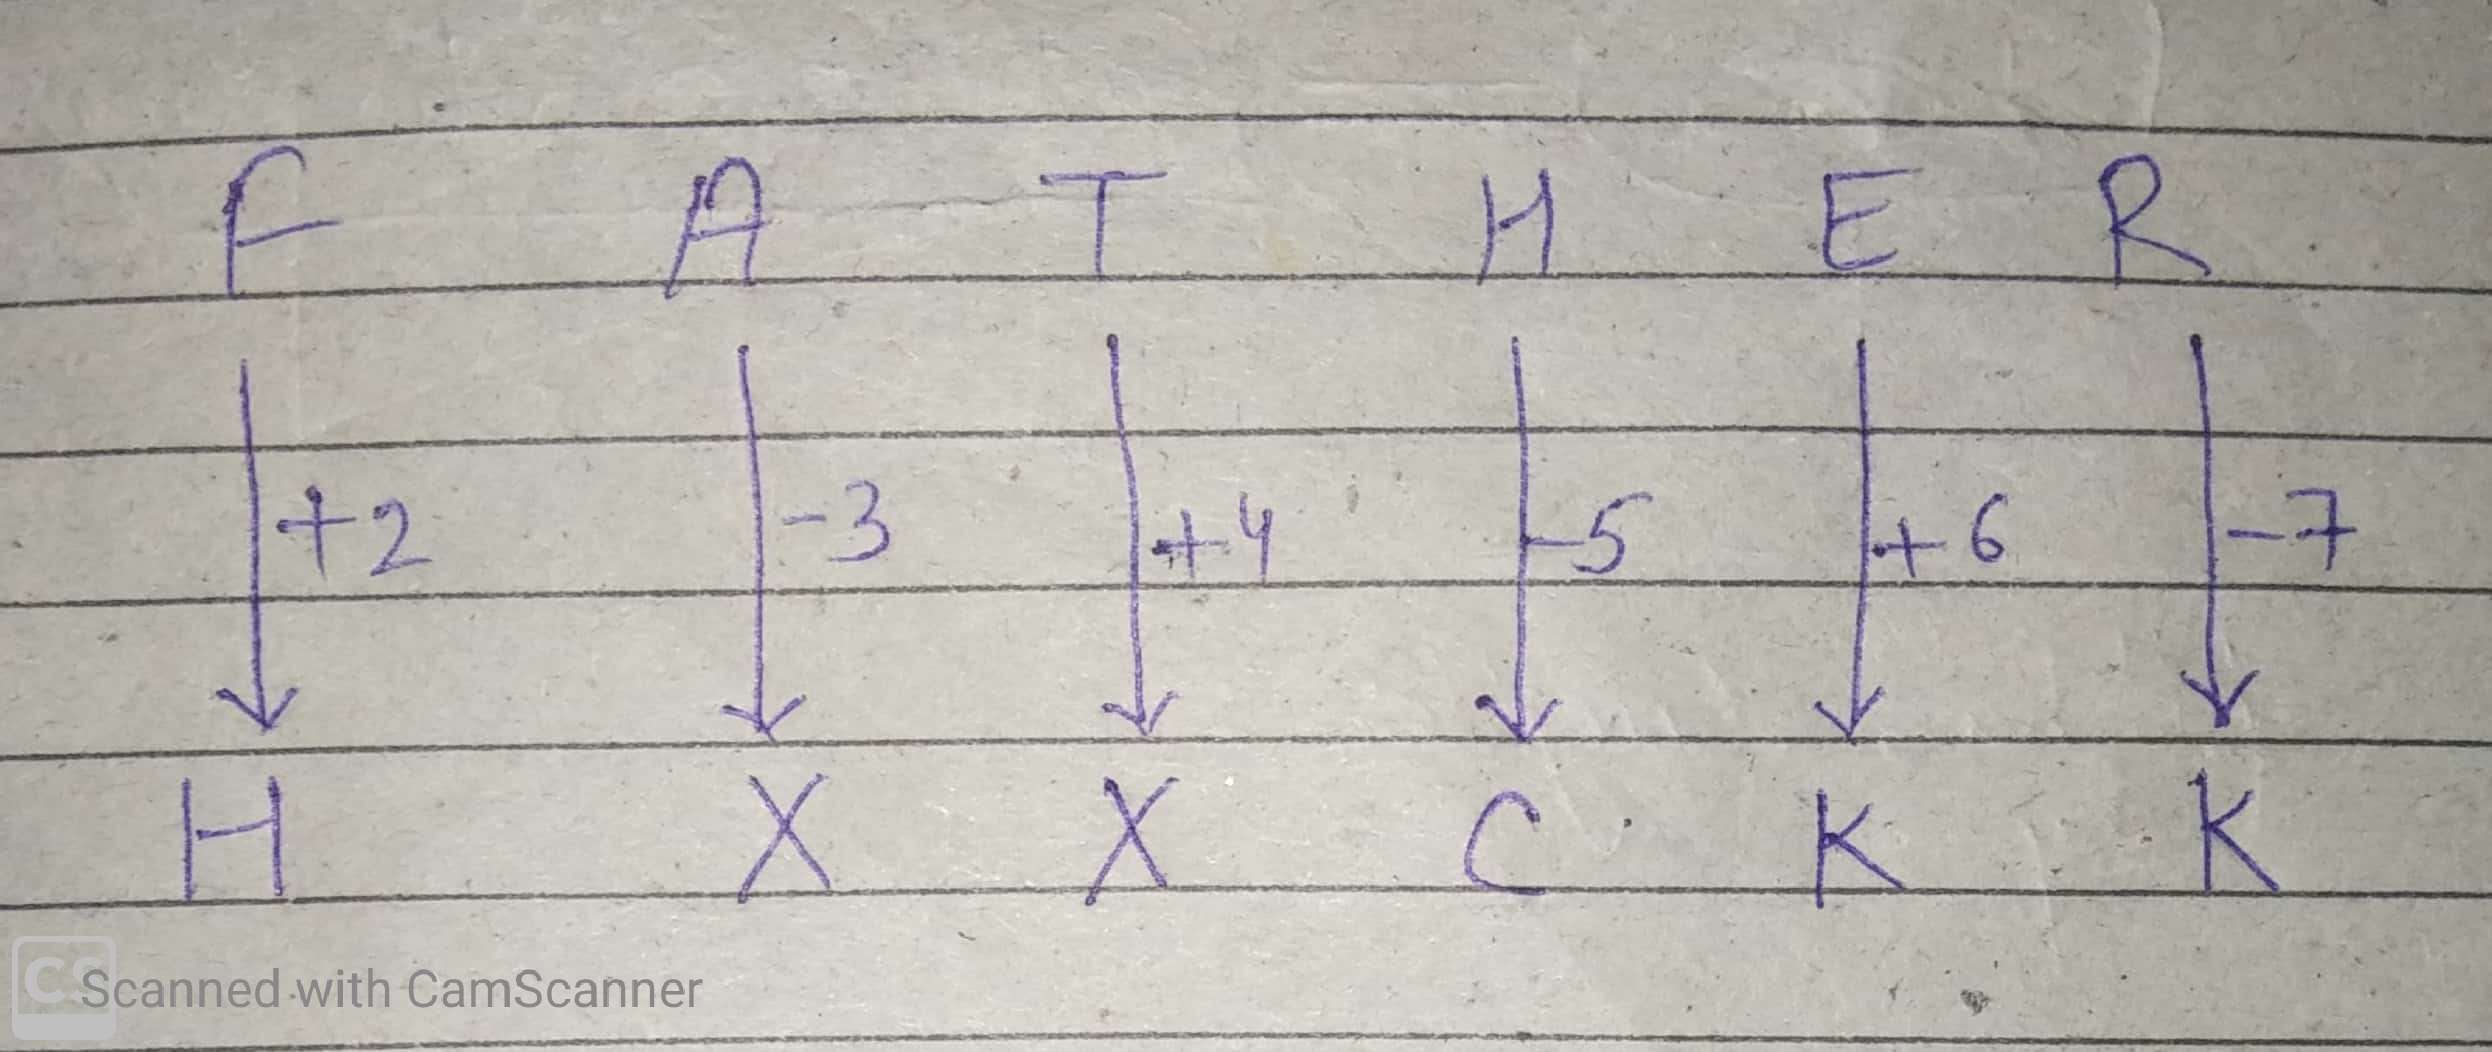 F A T H E R
+2 -3 +4 -5 +6 -7
H X X C K K
CS Scanned with CamScanner